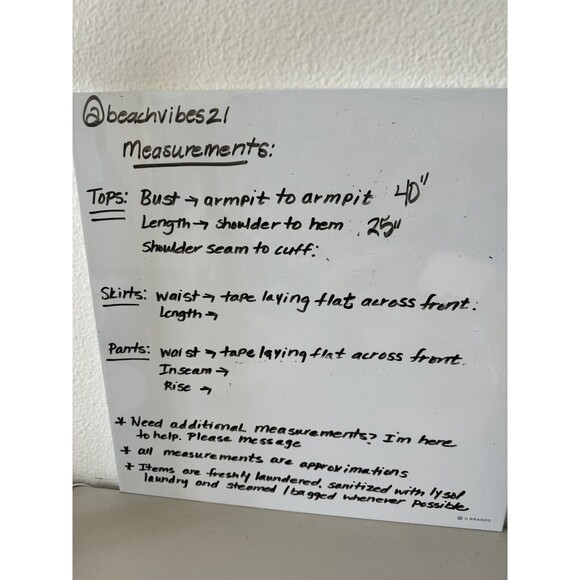 @beachvibes21
Measurements:
Tops: Bust → armpit to armpit 40"
Length → shoulder to hem 25"
Shoulder seam to cuff:
Skirts: waist → tape laying flat across front.
Length →
Pants: waist → tape laying flat across front.
Inseam →
Rise →
* Need additional measurements? I'm here
to help. Please message
* all measurements are approximations
* Items are freshly laundered, sanitized with lysol
laundry and steamed / bagged whenever possible
U BRANDS